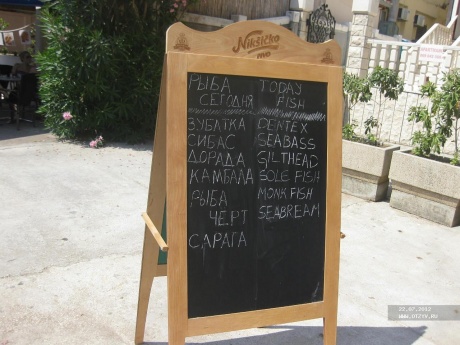 Nikšićko
PIVO
РЫБА
СЕГОДНЯ
ЗУБАТКА
СИБАС
ДОРАДА
КАМБАЛА
РЫБА
ЧЕРТ
САРАГА
TODAY
FISH
DENTEX
SEABASS
GILTHEAD
SOLE FISH
MONK FISH
SEABREAM
22.07.2012
WWW.OTZYV.RU